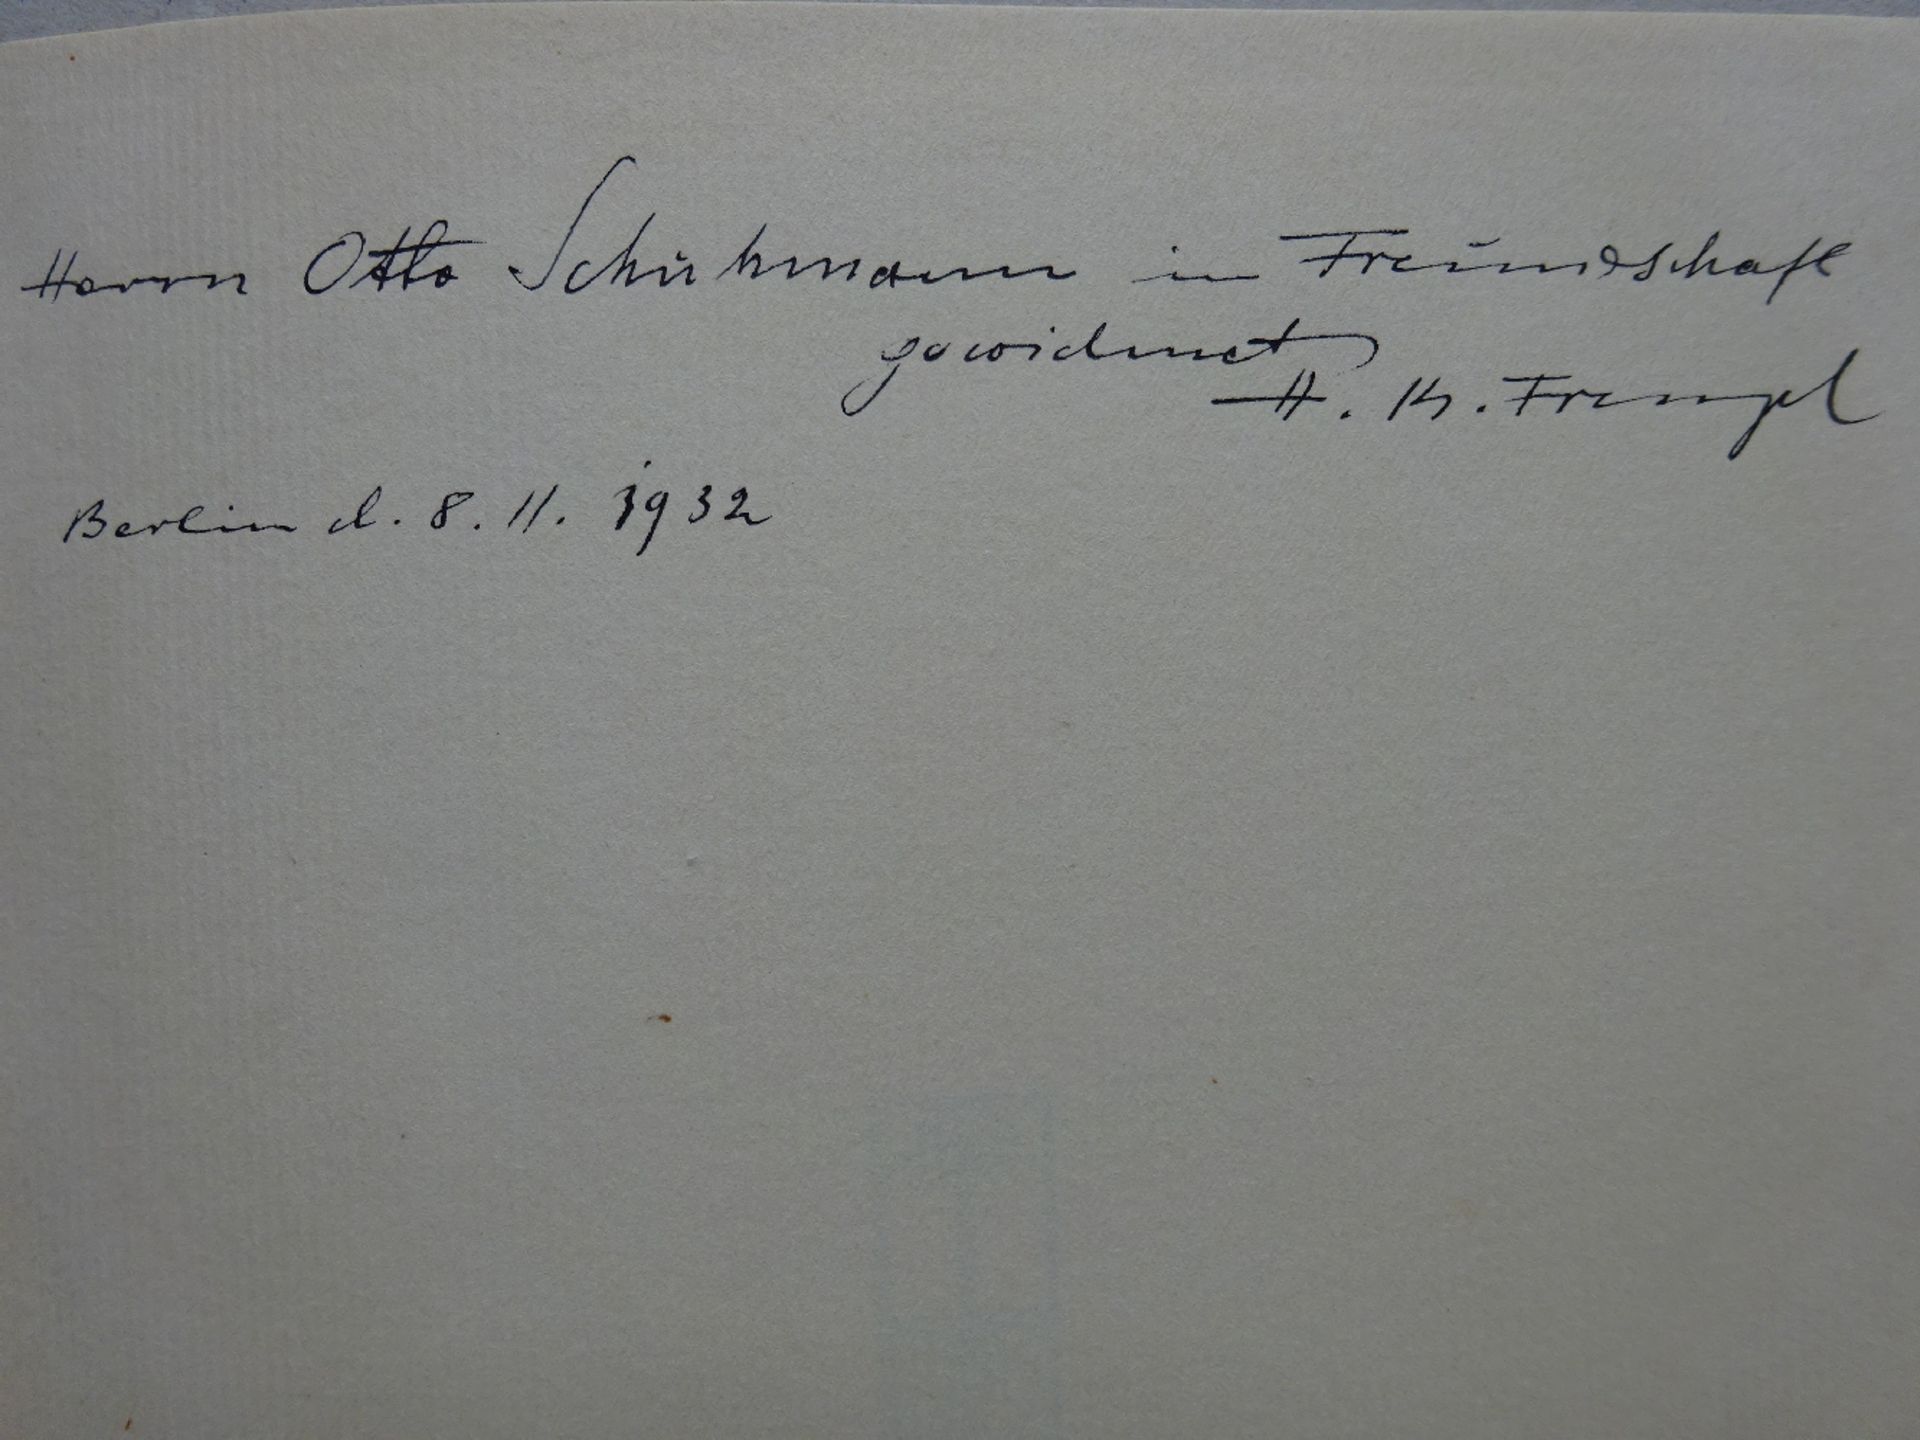 Herrn Otto Schuhmann in Freundschaft
gewidmet
H. K. Frenzel
Berlin d. 8. 11. 1932